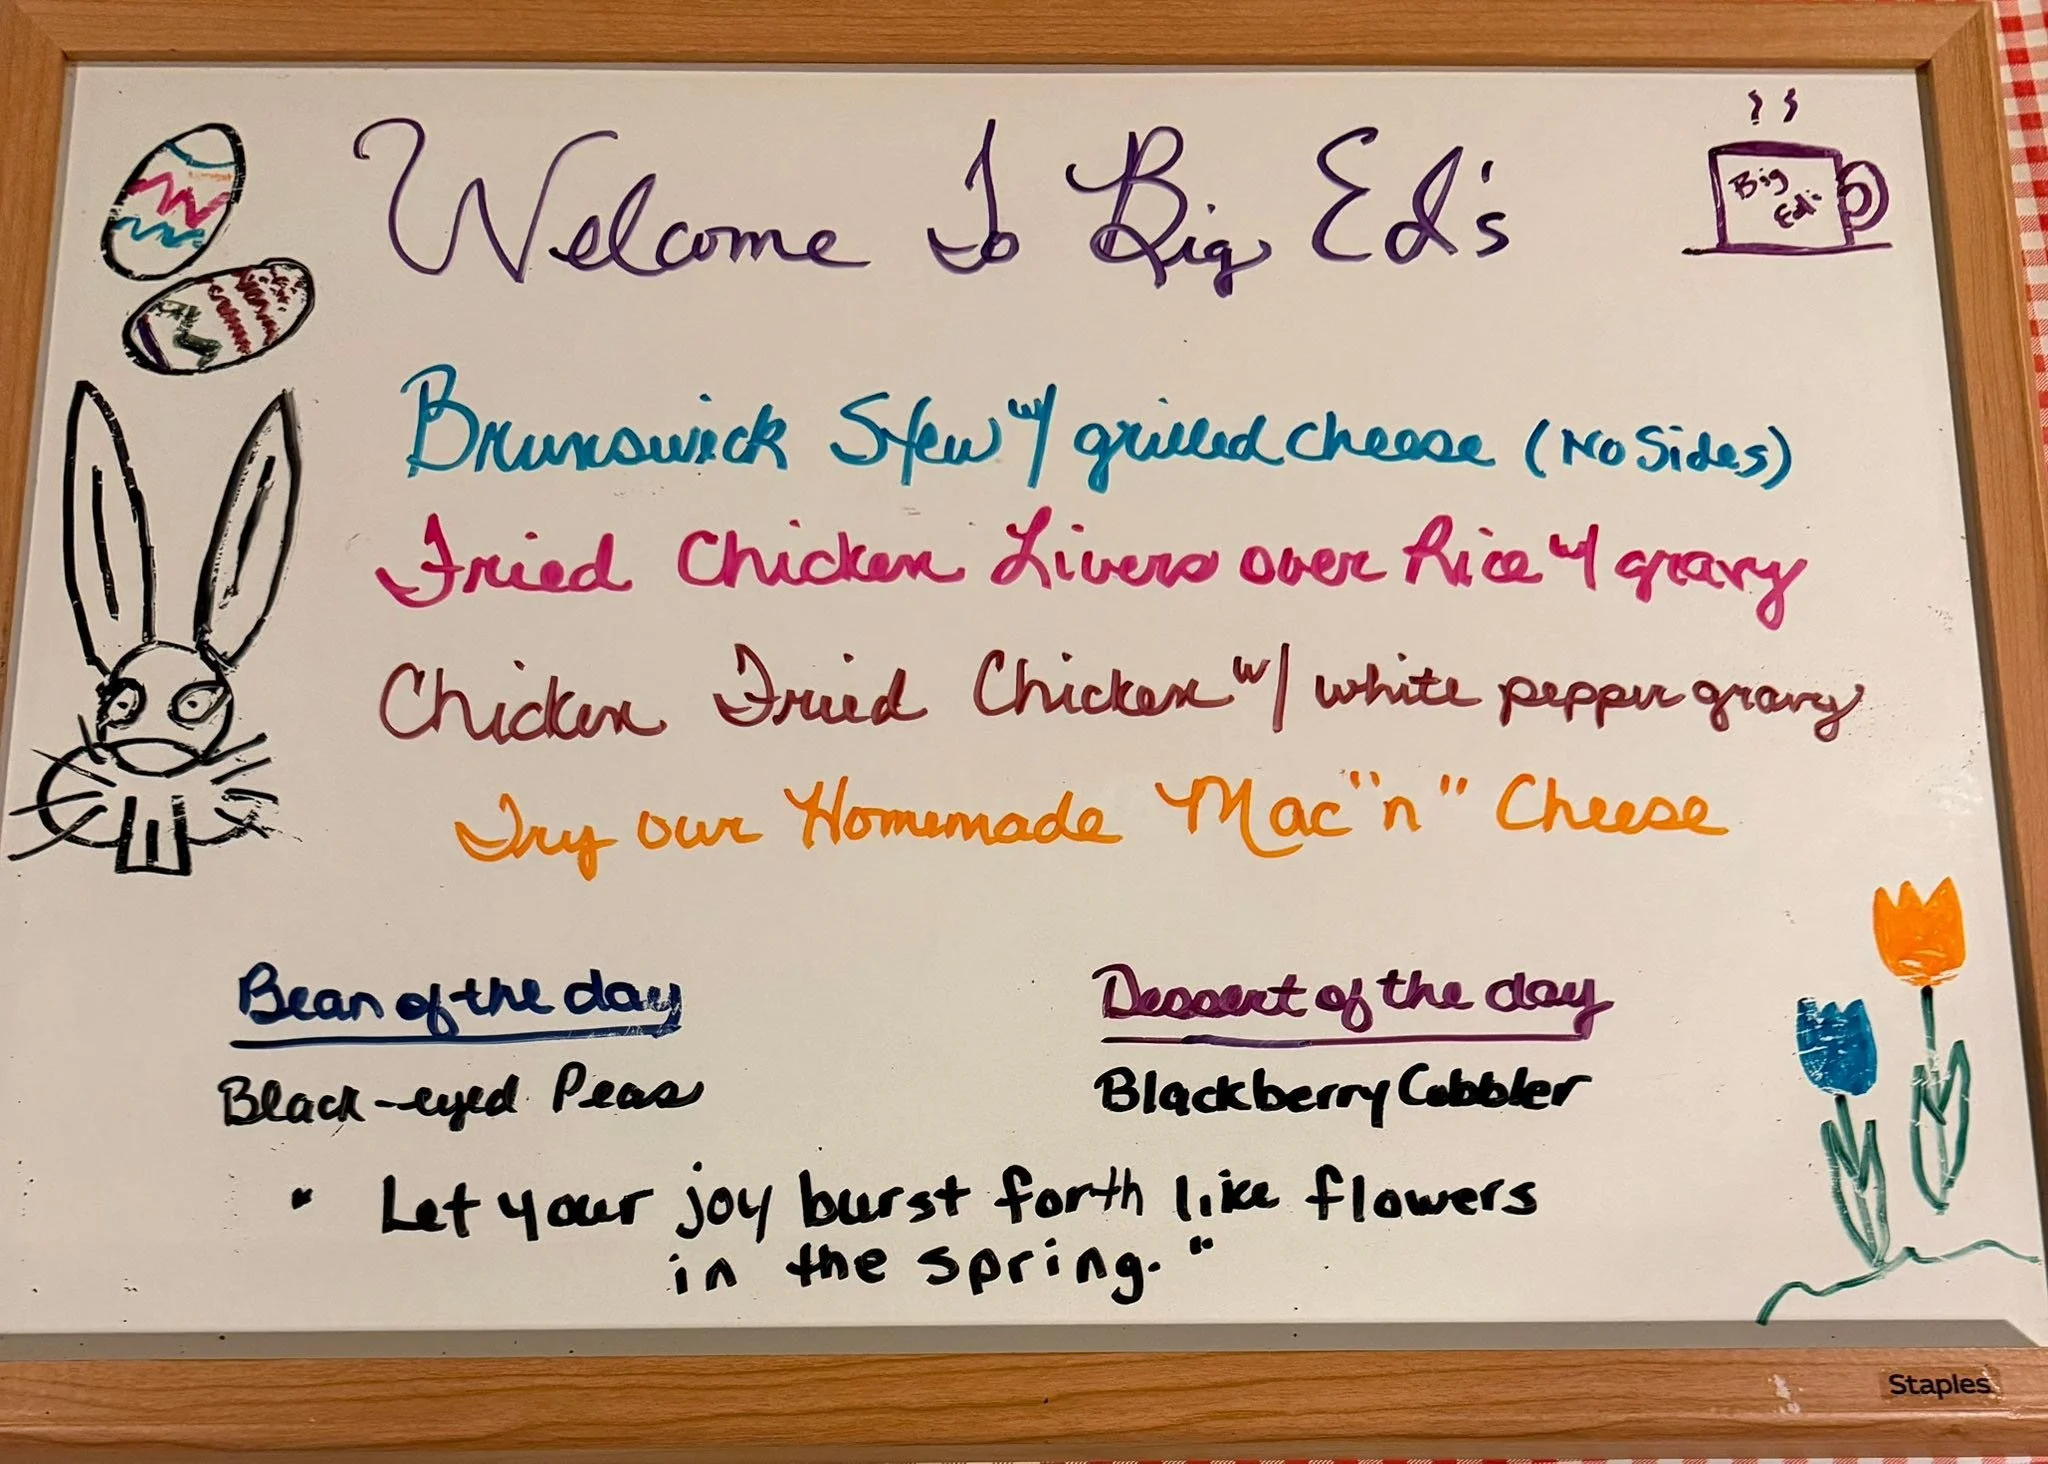 Welcome To Big Ed's
Big
Ed's
Brunswick Stew w/ grilled cheese (No Sides)
Fried Chicken Livers over Rice w/ gravy
Chicken Fried Chicken w/ white pepper gravy
Try our Homemade Mac "n" Cheese
Bean of the day
Black-eyed Peas
Dessert of the day
Blackberry Cobbler
" Let your joy burst forth like flowers
in the spring. "
Staples